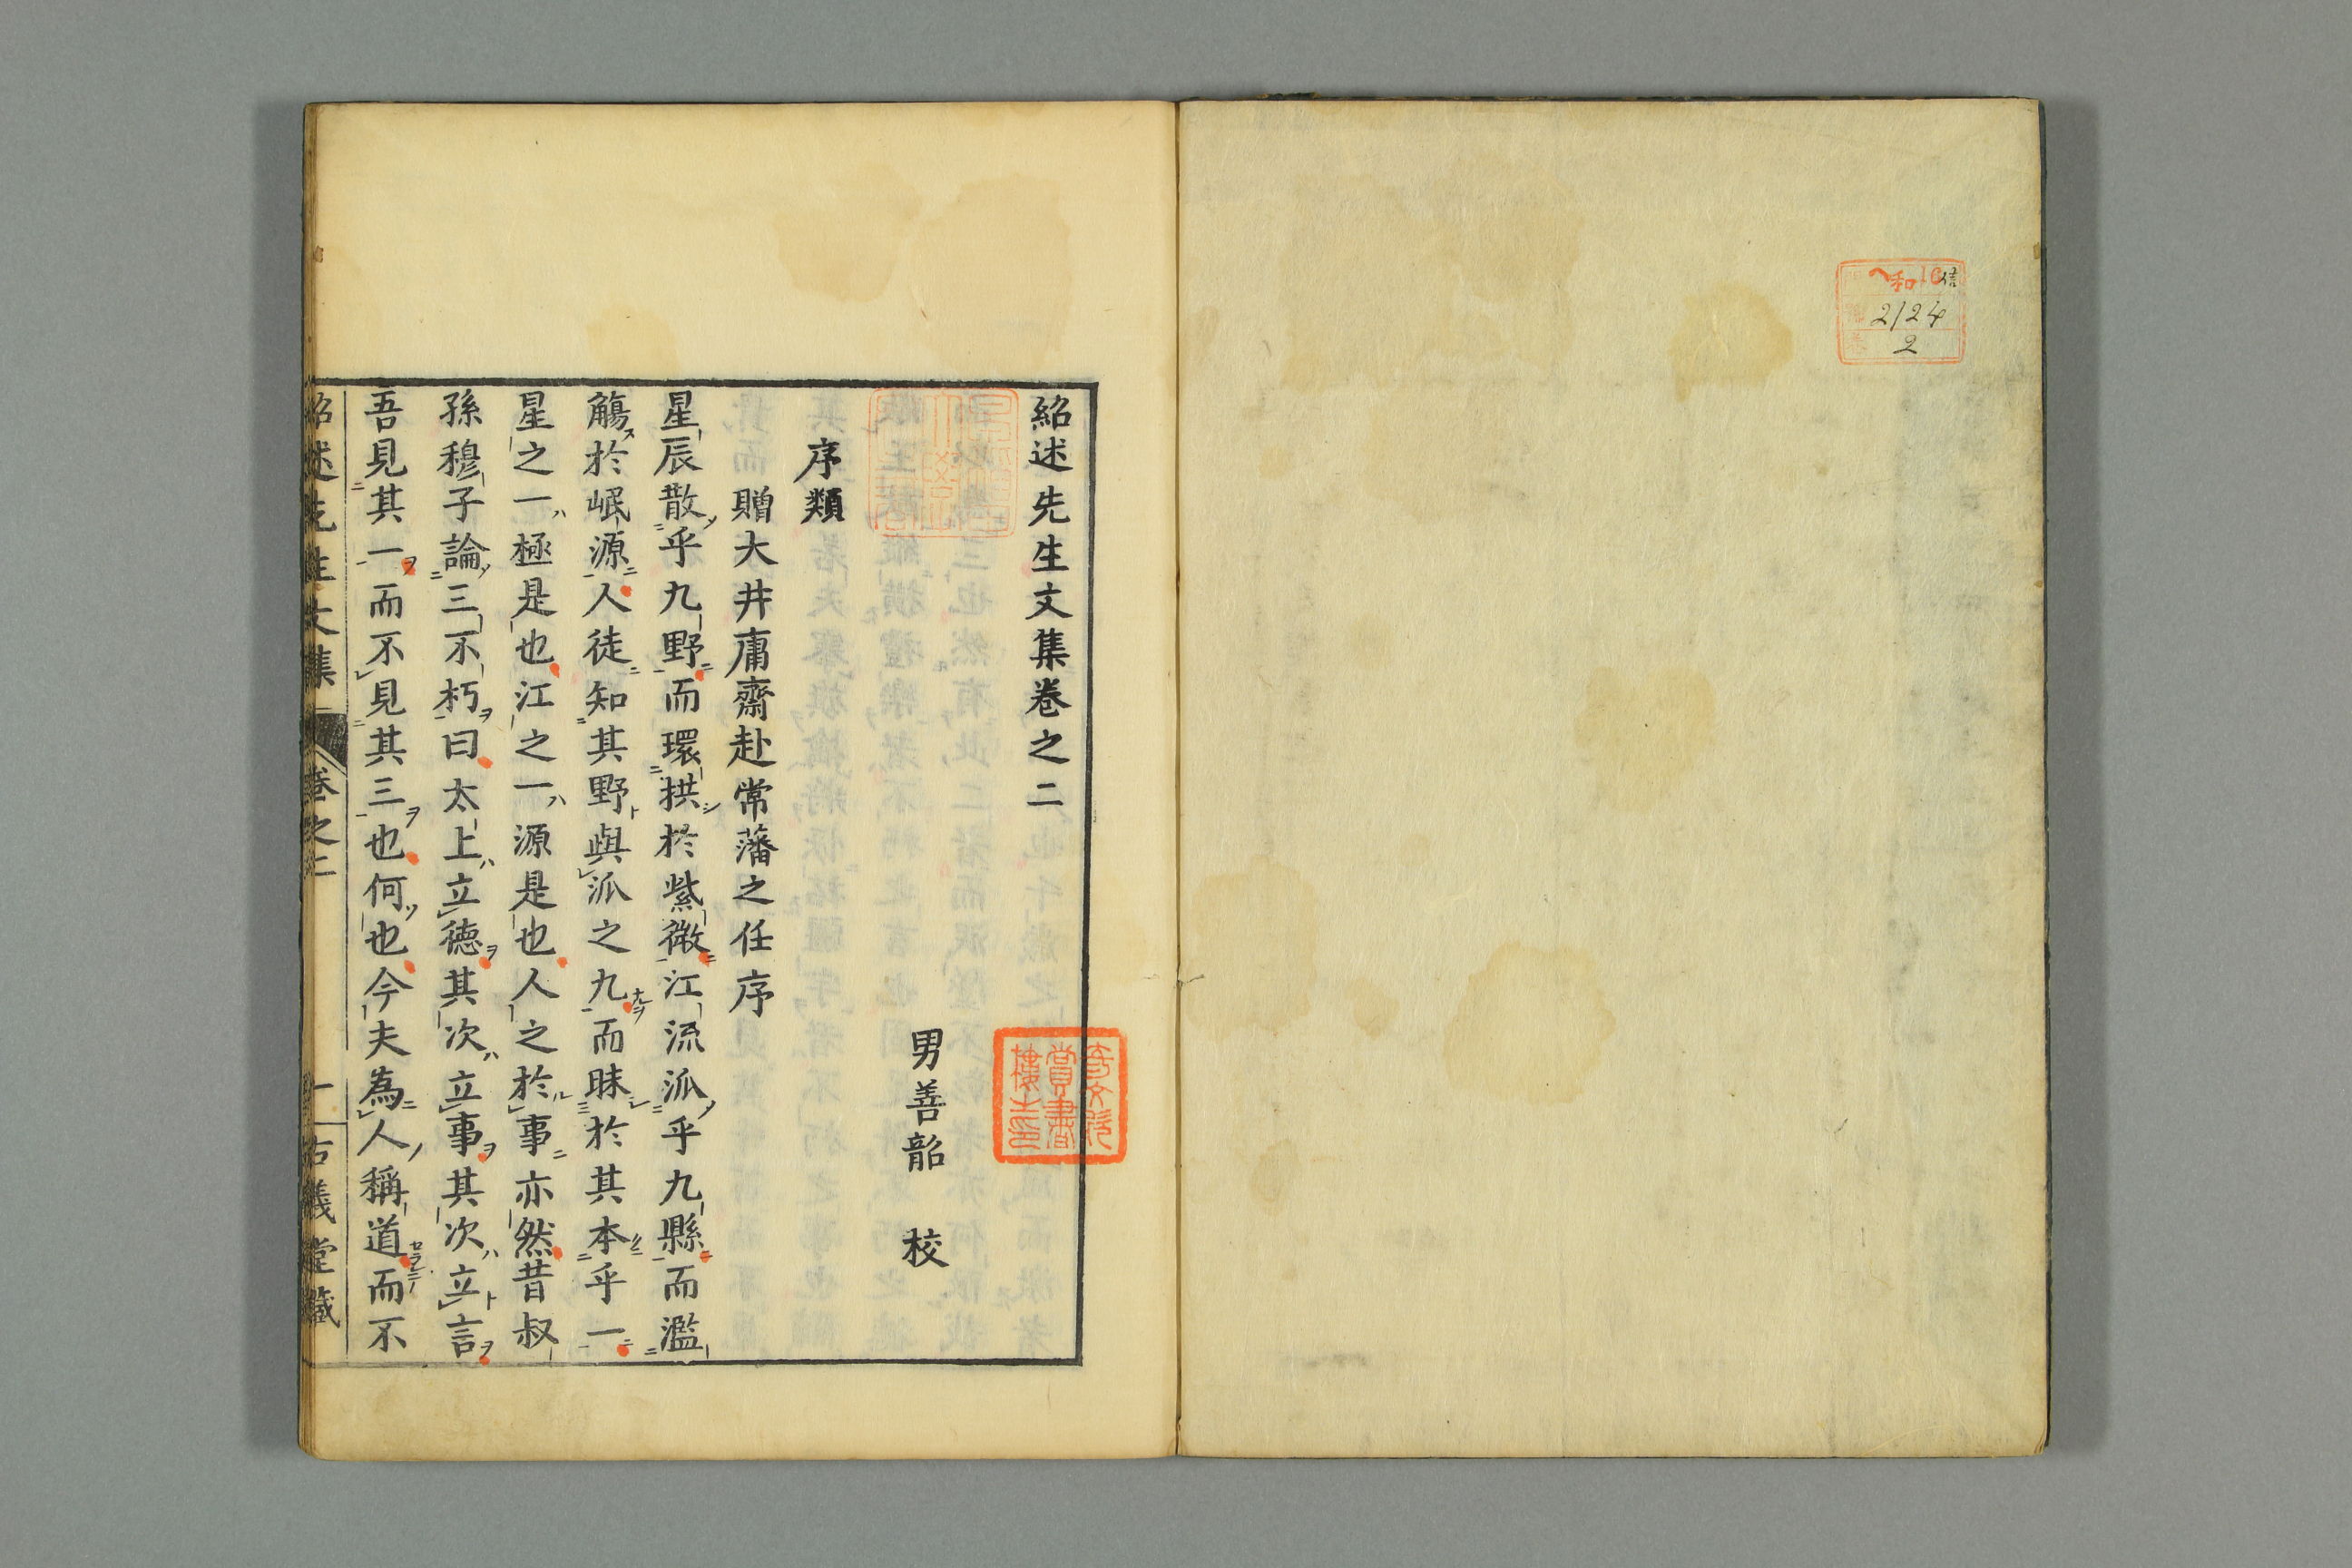 ヘ和16
信
2124
2
紹述先生文集卷之二
男善韶　校
序類
贈大井庸齋赴常藩之任序
星辰散乎九野而環拱於紫微江流派乎九縣而濫
觴於岷源人徒知其野與派之九而昧於其本乎一
星之一極是也江之一源是也人之於事亦然昔叔
孫穆子論三不朽曰太上立德其次立事其次立言
吾見其一而不見其三也何也今夫為人稱道而不
紹述先生文集　卷之二　一　古義堂藏
奇文欣
賞書
樓之印